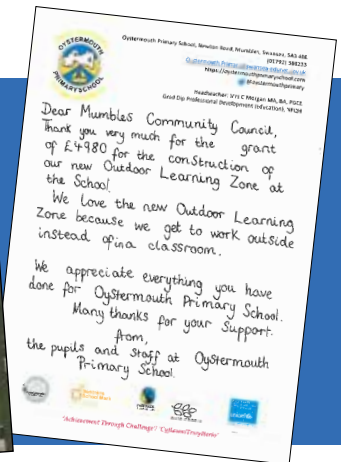 OYSTERMOUTH
PRIMARY SCHOOL
Oystermouth Primary School, Newton Road, Mumbles, Swansea, SA3 4BE
https://oystermouthprimaryschool.com
Headteacher: C Morgan MA, BA, PGCE
Grad Dip Professional Development (Education), NPQH
Dear Mumbles Community Council,
Thank you very much for the grant
of £4980 for the construction of
our new Outdoor Learning Zone at
the School.
We love the new Outdoor Learning
Zone because we get to work outside
instead of in a classroom.
We appreciate everything you have
done for Oystermouth Primary School.
Many thanks for your Support.
from,
the pupils and Staff at Oystermouth
Primary School.
unicef
'Achievement Through Challenge'/